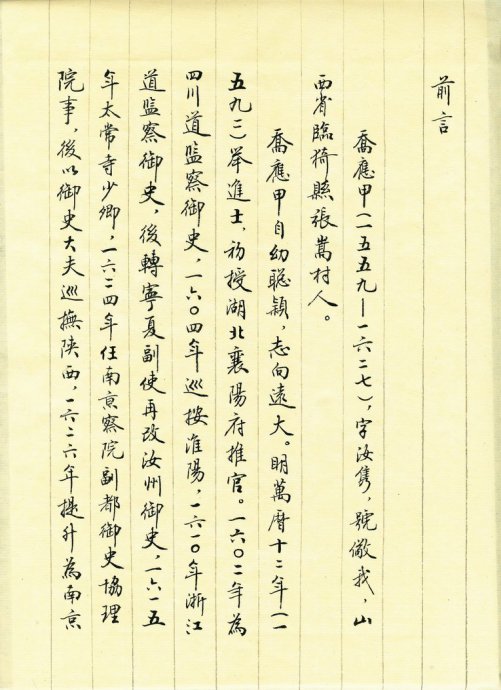 前言
喬應甲(一五五九—一六二七),字汝雋,號儆我,山
西省臨猗縣張嵩村人。
喬應甲自幼聰穎,志向遠大。明萬曆十二年(一
五九二)举進士,初授湖北襄陽府推官。一六〇二年為
四川道監察御史,一六〇四年巡按淮陽,一六一〇年浙江
道監察御史,後轉寧夏副使再改汝州御史,一六一五
年太常寺少卿,一六二四年任南京察院副都御史協理
院事,後以御史大夫巡撫陝西,一六二六年提升為南京